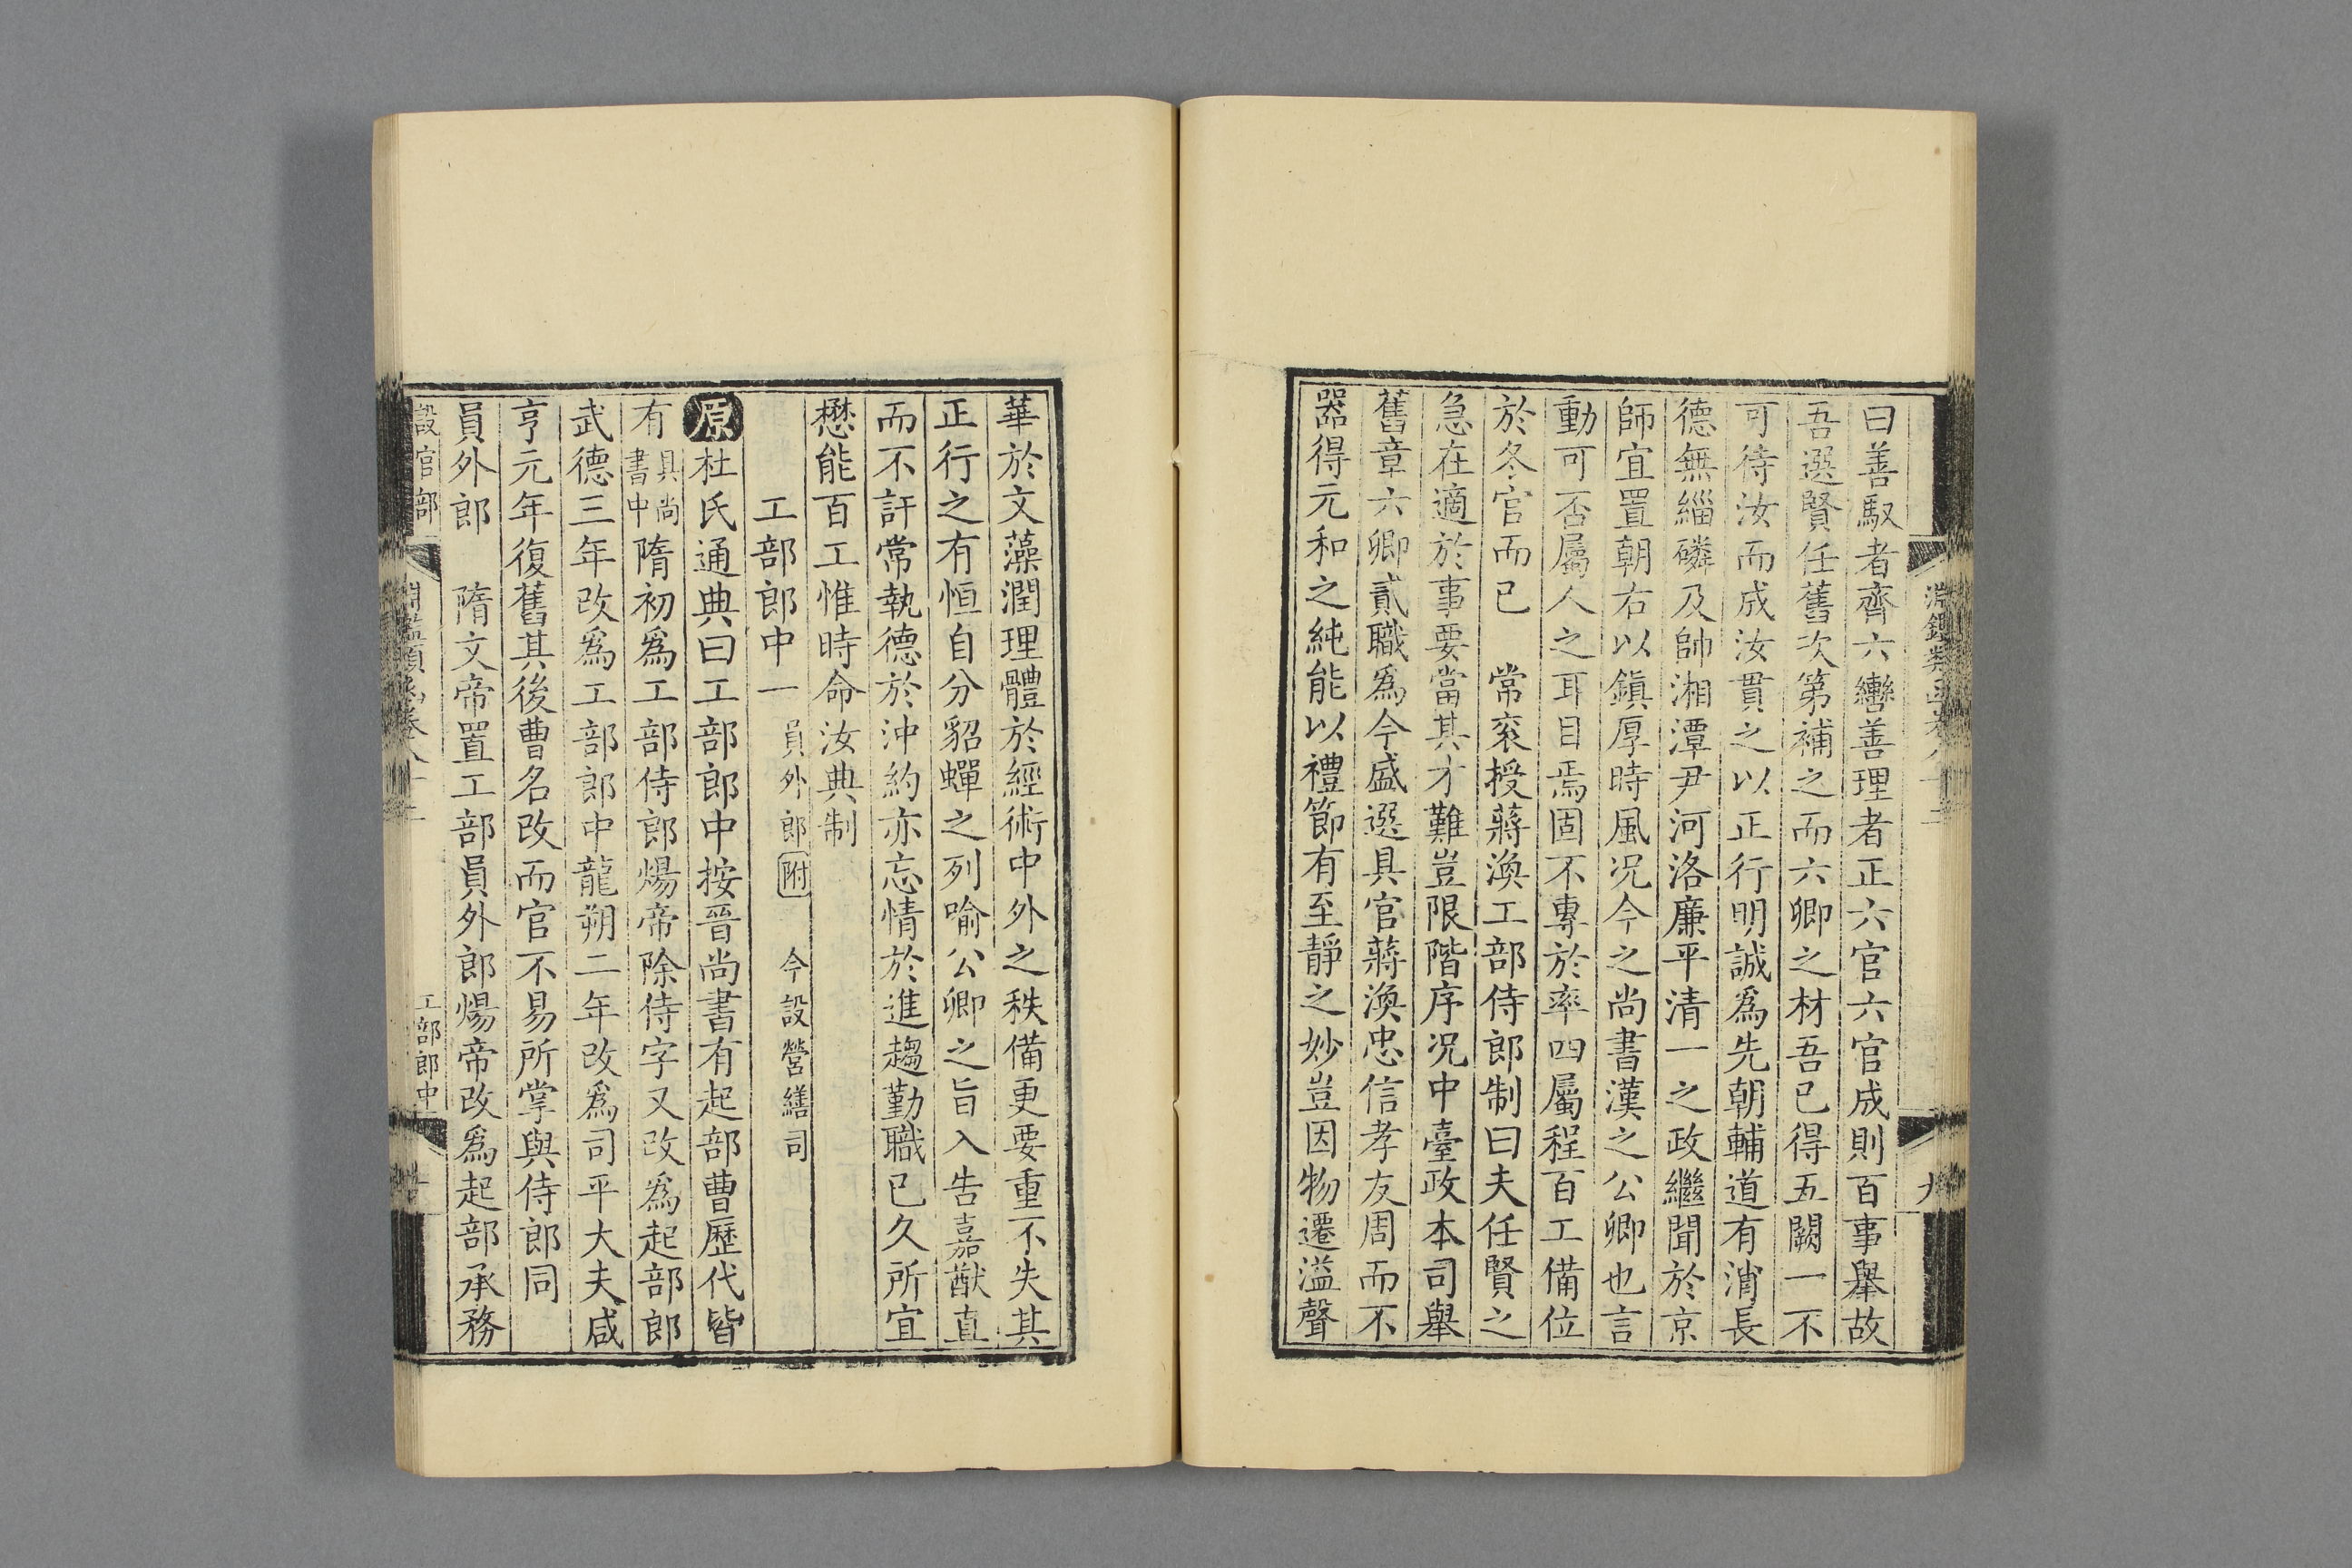 曰善馭者齊六轡善理者正六官六官成則百事舉故
吾選賢任舊次第補之而六卿之材吾已得五闕一不
可待汝而成汝貫之以正行明誠爲先朝輔道有消長
德無緇磷及帥湘潭尹河洛廉平清一之政繼聞於京
師宜置朝右以鎭厚時風况今之尚書漢之公卿也言
動可否屬人之耳目焉固不專於率四屬程百工備位
於冬官而已　常袞授蔣渙工部侍郎制曰夫任賢之
急在適於事要當其才難豈限階序况中臺政本司舉
舊章六卿貳職爲今盛選具官蔣渙忠信孝友周而不
器得元和之純能以禮節有至靜之妙豈因物遷溢聲
華於文藻潤理體於經術中外之秩備更要重不失其
正行之有恒自分貂蟬之列喻公卿之旨入告嘉猷直
而不訐常執德於沖約亦忘情於進趨勤職已久所宜
懋能百工惟時命汝典制
工部郎中一 員外郎附　今設營繕司
原杜氏通典曰工部郎中按晉尚書有起部曹歷代皆
有具尚書中隋初爲工部侍郎煬帝除侍字又改爲起部郎
武德三年改爲工部郎中龍朔二年改爲司平大夫咸
亨元年復舊其後曹名改而官不易所掌與侍郎同
員外郎　隋文帝置工部員外郎煬帝改爲起部承務
設官部　淵鑑類函卷八十二　工部郎中